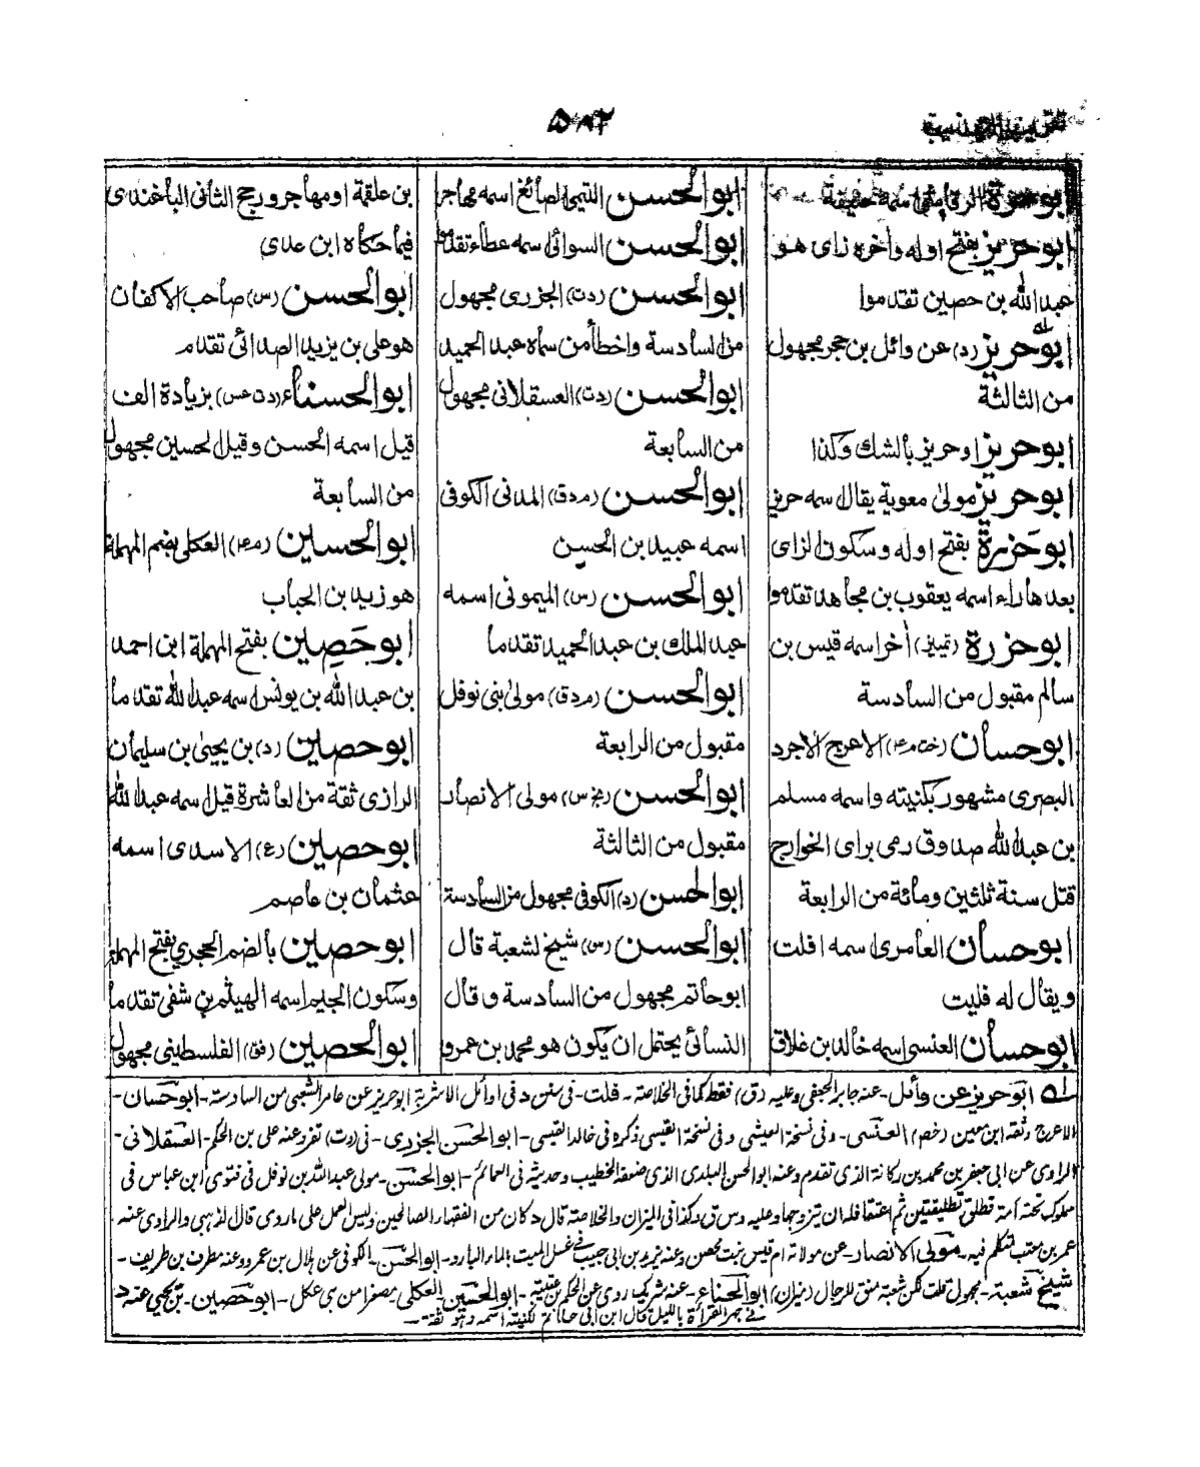 تقريب التهذيب
۵۸۲
ابوحرة الرقاشي اسمه حنيفة
ابوحريز بفتح اوله واخره زاى هو
عبد الله بن حصين تقدموا
ابوحريز (د) عن وائل بن حجر مجهول
من الثالثة
ابوحريز اوحريز بالشك وكذا
ابوحريز مولى معوية يقال اسمه حريز
ابوحَزرة بفتح اوله وسكون الزاى
بعدها راء اسمه يعقوب بن مجاهد تقدموا
ابوحزرة (تمييز) أخر اسمه قيس بن
سالم مقبول من السادسة
ابوحسان (خت م ۴) الاعرج الاجرد
البصرى مشهور بكنيته واسمه مسلم
بن عبد الله صدوق رمى براى الخوارج
قتل سنة ثلثين ومائة من الرابعة
ابوحسان العامرى اسمه افلت
ويقال له فليت
ابوحسان العنسى اسمه خالد بن غلاق
ابوالحسن التيمى الصائغ اسمه مهاجر
ابوالحسن السوائى اسمه عطاء تقدموا
ابوالحسن (د ت) الجزرى مجهول
من السادسة واخطأ من سماه عبد الحميد
ابوالحسن (د ت) العسقلانى مجهول
من السابعة
ابوالحسن (م د ق) المدنى الكوفى
اسمه عبيد بن الحسن
ابوالحسن (س) الميمونى اسمه
عبد الملك بن عبد الحميد تقدما
ابوالحسن (م د ق) مولى بنى نوفل
مقبول من الرابعة
ابوالحسن (بخ س) مولى الانصار
مقبول من الثالثة
ابوالحسن (د) الكوفى مجهول من السادسة
ابوالحسن (س) شيخ لشعبة قال
ابوحاتم مجهول من السادسة وقال
النسائى يحتمل ان يكون هو محمد بن عمرو
بن علقمة اومهاجر ورجح الثانى الباغندى
فيما حكاه ابن عدى
ابوالحسن (س) صاحب الاكفان
هو على بن يزيد الصدائى تقدم
ابوالحسناء (د ت عس) بزيادة الف
قيل اسمه الحسن وقيل الحسين مجهول
من السابعة
ابوالحسين (م ۴) العكلى بضم المهملة
هو زيد بن الحباب
ابوحَصِين بفتح المهملة ابن احمد
بن عبد الله بن يونس اسمه عبد الله تقدما
ابوحصين (د) بن يحيى بن سليمان
الرازى ثقة من العاشرة قيل اسمه عبد الله
ابوحصين (ع) الاسدى اسمه
عثمان بن عاصم
ابوحصين بالضم الحجرى بفتح المهملة
وسكون الجيم اسمه الهيثم بن شفى تقدما
ابوالحصين (فق) الفلسطينى مجهول
له ابوحريز عن وائل - عنه جابر الجعفى وعليه (د ق) فقط كما فى الخلاصة - قلت - فى سنن د فى اوائل الاشربة ابوحريز عن عامر الشعبى من السادسة - ابوحسان -
الاعرج وثقه ابن معين (خصم) العنسى - وفى نسخة العيشى وفى نسخة القيسى ذكره فى خالد القيسى - ابوالحسن الجزرى - فى (د ت) تفرد عنه على بن الحكم - العسقلانى -
الراوى عن ابى جعفر بن محمد بن ركانة الذى تقدم وعنه ابوالحسن البلدى الذى ضعفه الخطيب وحديثه فى العمائم - ابوالحسن - مولى عبد الله بن نوفل فى فتوى ابن عباس فى
مملوك تحته امة فطلق تطليقتين ثم اعتقا فله ان يتزوجها وعليه د س ق كذا فى الميزان والخلاصة قال د كان من الفقهاء الصالحين وليس العمل على ما روى قال الذهبى والراوى عنه
عمر بن معتب تكلم فيه - مولى الانصار - عن مولاته ام قيس بنت محصن وعنه يزيد بن ابى حبيب فى غسل الميت بالماء البارد - ابوالحسن - الكوفى عن هلال بن عمرو وعنه مطرف بن طريف -
شيخ شعبة - مجهول قلت لكن شعبة منق للرجال (ميزان) ابوالحسناء - عنه شريك روى عن الحكم بن عتيبة - ابوالحسين العكلى مصغرا من بنى عكل - ابوحصين - بن يحيى عنه د
فى جهر القرأة بالليل قال ابن ابى حاتم كنيته اسمه وهو ثقة -